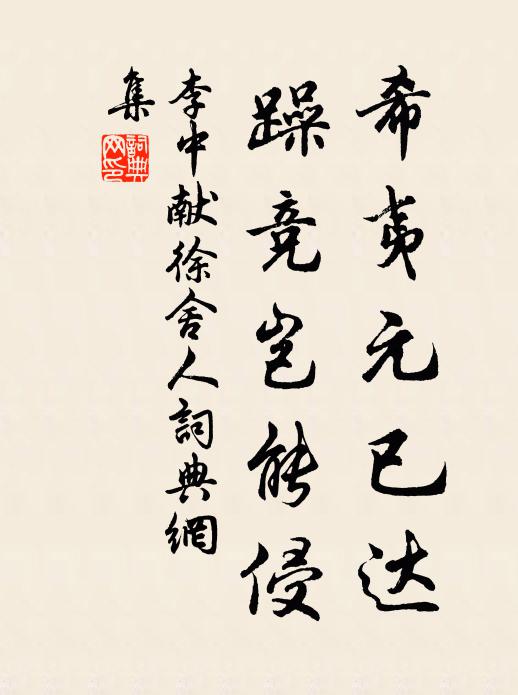 希夷元已达
躁竞岂能侵
李中献徐舍人詞典網
集
詞典網印